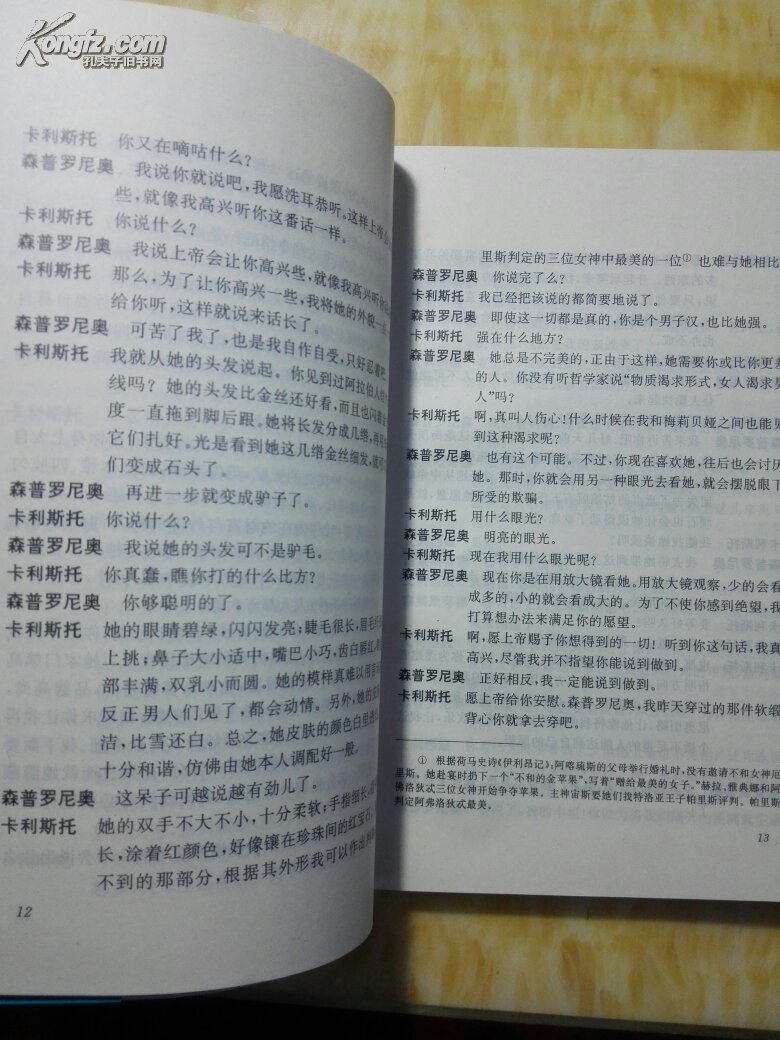 Kongfz.com
孔夫子旧书网
卡利斯托 你又在嘀咕什么？
森普罗尼奥 我说你就说吧，我愿洗耳恭听。这样上帝会
些，就像我高兴听你这番话一样。
卡利斯托 你说什么？
森普罗尼奥 我说上帝会让你高兴些，就像我高兴听你
卡利斯托 那么，为了让你高兴一些，我将她的外貌一
给你听，这样就说来话长了。
森普罗尼奥 可苦了我了，也是我自作自受，只好忍着吧
卡利斯托 我就从她的头发说起。你见到过阿拉伯人
线吗？她的头发比金丝还好看，而且也闪
度一直拖到脚后跟。她将长发分成几绺，再
它们扎好。光是看到她这几绺金丝细发，
们变成石头了。
森普罗尼奥 再进一步就变成驴子了。
卡利斯托 你说什么？
森普罗尼奥 我说她的头发可不是驴毛。
卡利斯托 你真蠢，瞧你打的什么比方？
森普罗尼奥 你够聪明的了。
卡利斯托 她的眼睛碧绿，闪闪发亮；睫毛很长，眉毛
上挑；鼻子大小适中，嘴巴小巧，齿白唇红，
部丰满，双乳小而圆。她的模样真难以用
反正男人们见了，都会动情。另外，她的皮肤
洁，比雪还白。总之，她皮肤的颜色白里
十分和谐，仿佛由她本人调配好一般。
森普罗尼奥 这呆子可越说越有劲儿了。
卡利斯托 她的双手不大不小，十分柔软；手指细长，
长，涂着红颜色，好像镶在珍珠间的红宝石
不到的那部分，根据其外形我可以作出判
12
里斯判定的三位女神中最美的一位① 也难与她相比
森普罗尼奥 你说完了么？
卡利斯托 我已经把该说的都简要地说了。
森普罗尼奥 即使这一切都是真的，你是个男子汉，也比她强。
卡利斯托 强在什么地方？
森普罗尼奥 她总是不完美的，正由于这样，她需要你或比你更差
的人。你没有听哲学家说“物质渴求形式，女人渴求男
人”吗？
卡利斯托 啊，真叫人伤心！什么时候在我和梅莉贝娅之间也能见
到这种渴求呢？
森普罗尼奥 也有这个可能。不过，你现在喜欢她，往后也会讨厌
她。那时，你就会用另一种眼光去看她，就会摆脱眼下
所受的欺骗。
卡利斯托 用什么眼光？
森普罗尼奥 明亮的眼光。
卡利斯托 现在我用什么眼光呢？
森普罗尼奥 现在你是在用放大镜看她。用放大镜观察，少的会看
成多的，小的就会看成大的。为了不使你感到绝望，我
打算想办法来满足你的愿望。
卡利斯托 啊，愿上帝赐予你想得到的一切！听到你这句话，我真
高兴，尽管我并不指望你能说到做到。
森普罗尼奥 正好相反，我一定能说到做到。
卡利斯托 愿上帝给你安慰。森普罗尼奥，我昨天穿过的那件软缎
背心你就拿去穿吧。
① 根据荷马史诗《伊利昂记》，阿喀琉斯的父母举行婚礼时，没有邀请不和女神厄
里斯。她赴宴时扔下一个“不和的金苹果”，写着“赠给最美的女子。”赫拉、雅典娜和阿
佛洛狄忒三位女神开始争夺苹果。主神宙斯要她们找特洛亚王子帕里斯评判。帕里斯
判定阿弗洛狄忒最美。
13